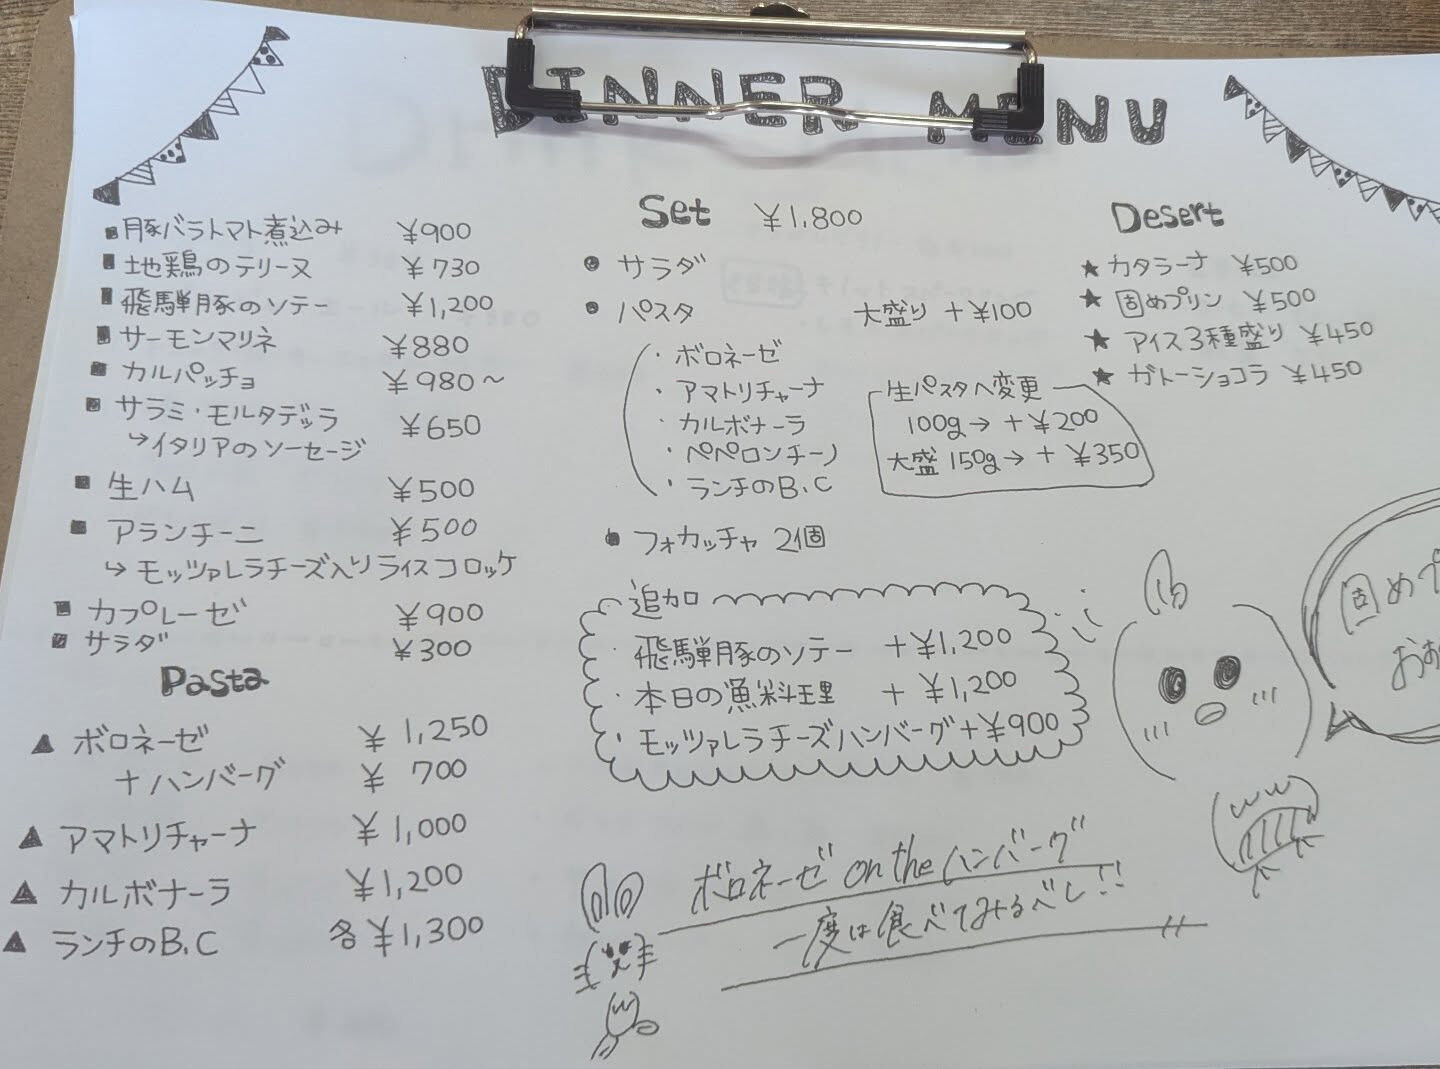 DINNER MENU
■豚バラトマト煮込み ¥900
■地鶏のテリーヌ ¥730
■飛騨豚のソテー ¥1,200
■サーモンマリネ ¥880
■カルパッチョ ¥980〜
■サラミ・モルタデッラ ¥650
↳イタリアのソーセージ
■生ハム ¥500
■アランチーニ ¥500
↳モッツァレラチーズ入りライスコロッケ
■カプレーゼ ¥900
■サラダ ¥300
Pasta
▲ボロネーゼ ¥1,250
+ハンバーグ ¥700
▲アマトリチャーナ ¥1,000
▲カルボナーラ ¥1,200
▲ランチのB.C 各¥1,300
Set ¥1,800
●サラダ
●パスタ 大盛り+¥100
・ボロネーゼ
・アマトリチャーナ
・カルボナーラ
・ペペロンチーノ
・ランチのB.C
生パスタへ変更
100g→+¥200
大盛150g→+¥350
●フォカッチャ 2個
追加
・飛騨豚のソテー +¥1,200
・本日の魚料理 +¥1,200
・モッツァレラチーズハンバーグ+¥900
Desert
★カタラーナ ¥500
★固めプリン ¥500
★アイス3種盛り ¥450
★ガトーショコラ ¥450
固めプ
おお
ボロネーゼ on the ハンバーグ
一度は食べてみるべし!!